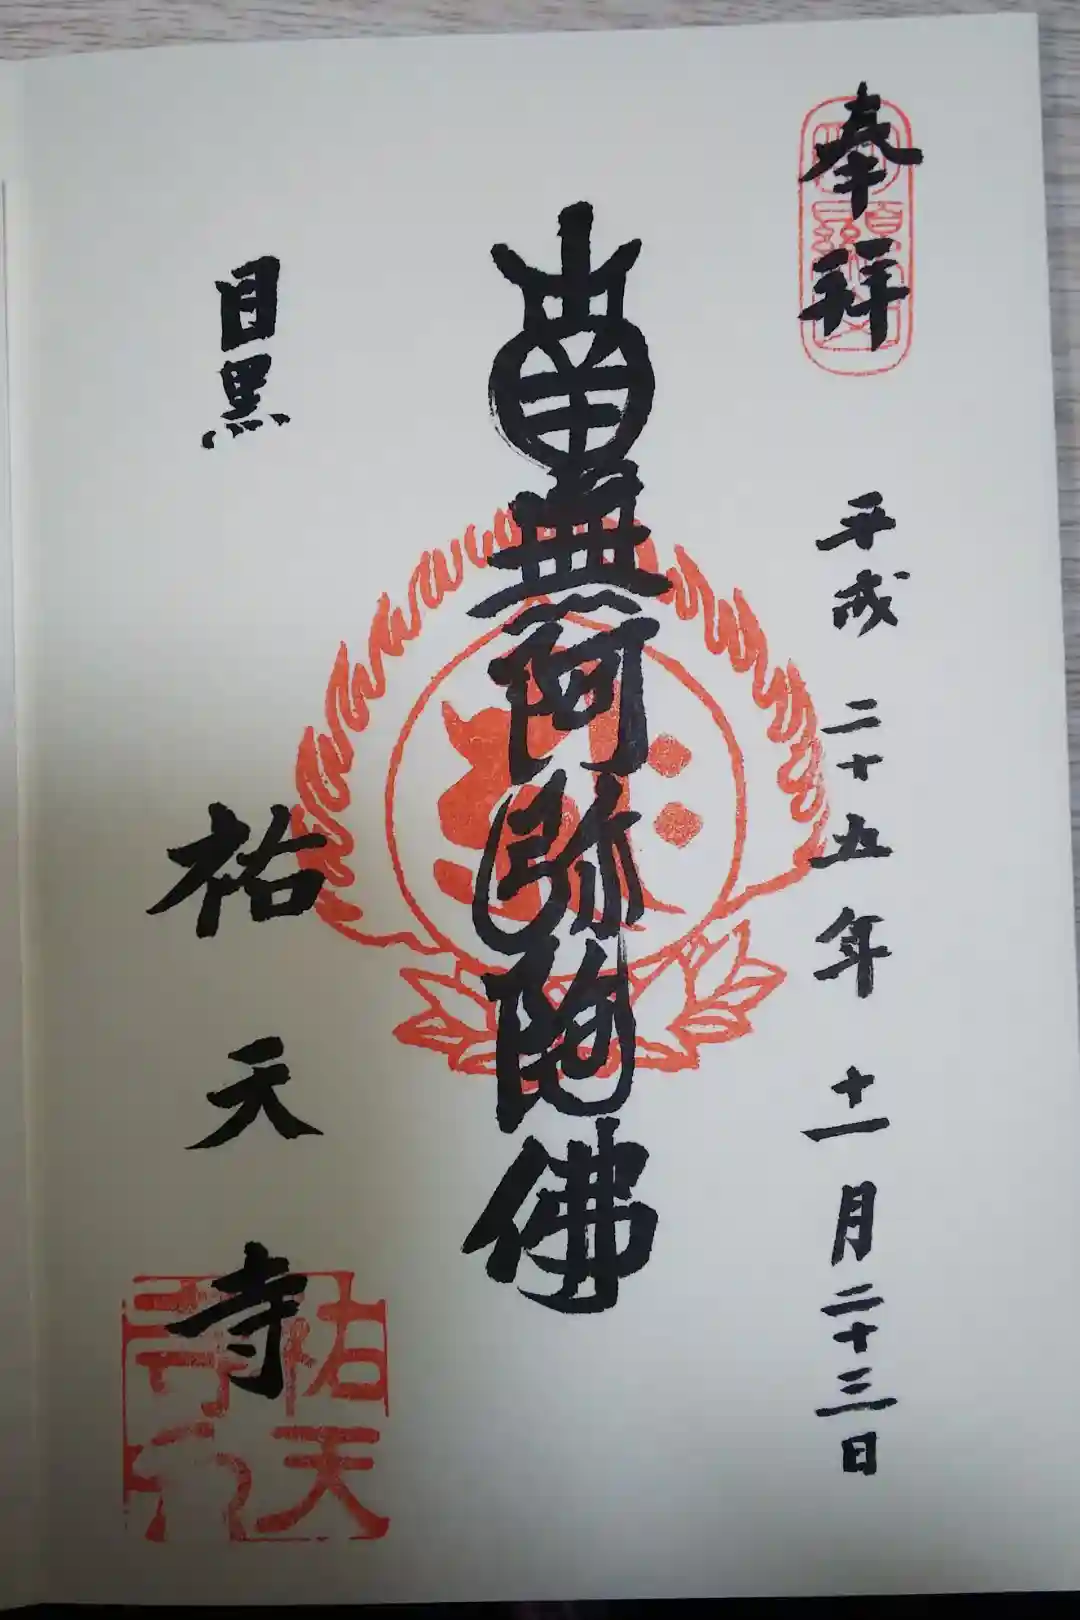 奉拝
平成二十五年十一月二十三日
南無阿弥陀佛
目黒
祐天寺
祐天寺印